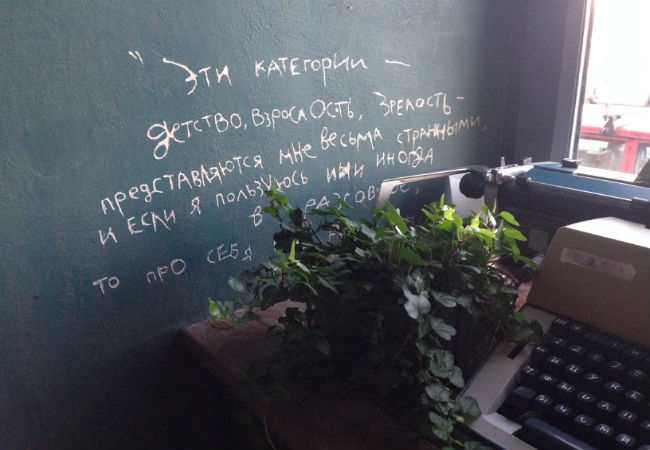 "Эти категории —
детство, взрослость, зрелость —
представляются мне весьма странными,
и если я пользуюсь ими иногда
в разговоре,
то про себя